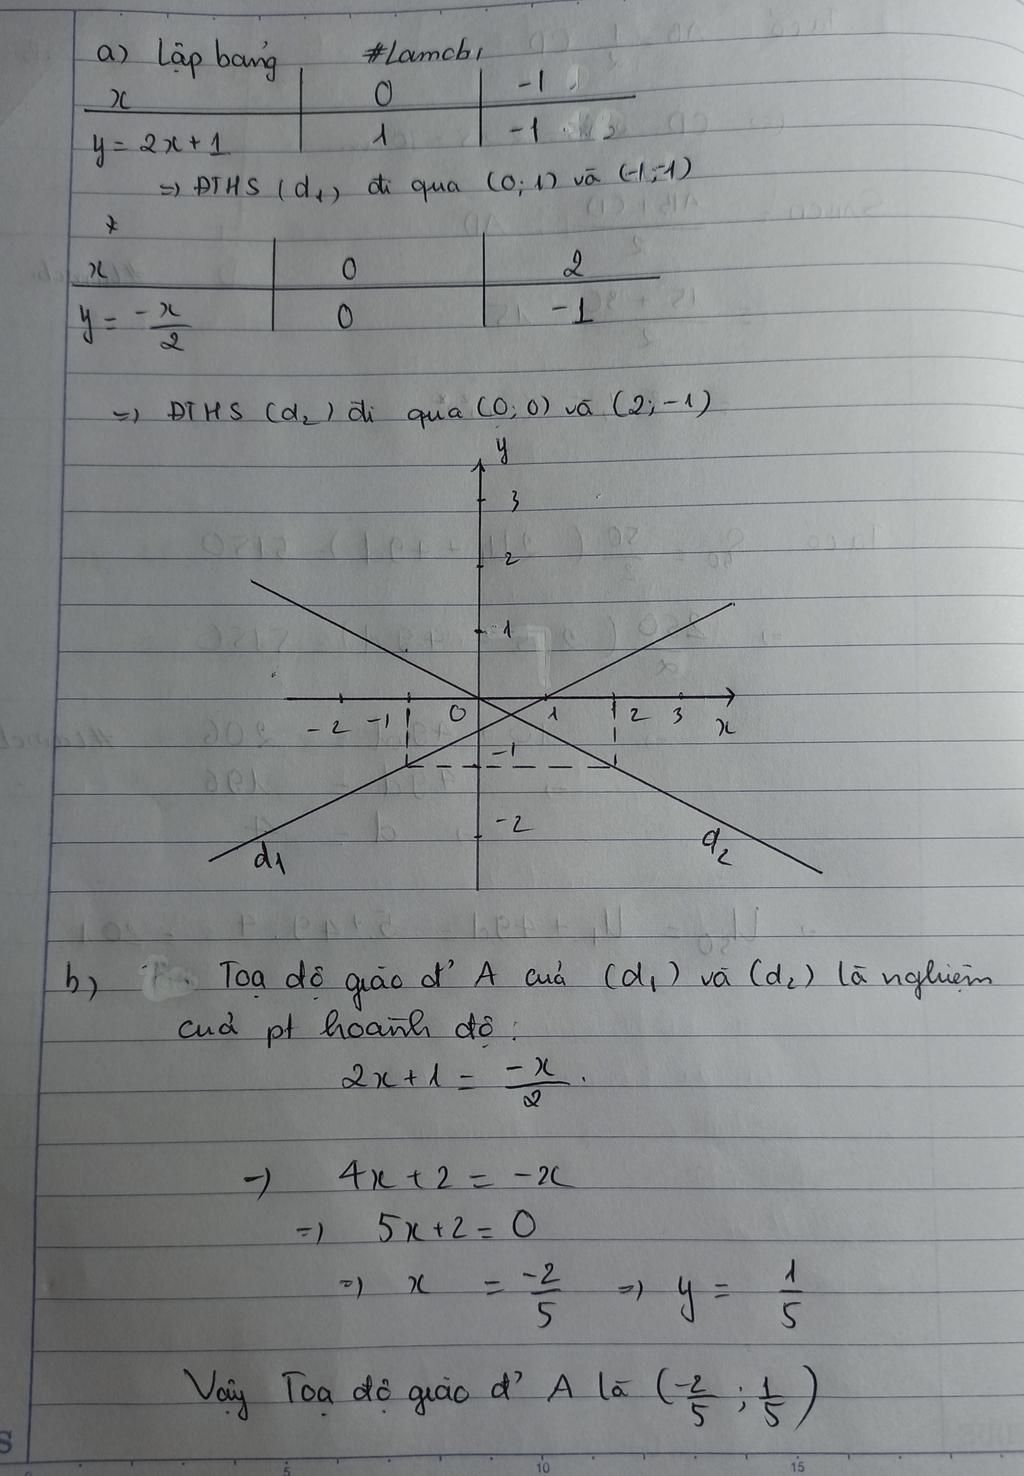 a) Lập bảng #lamchi
x 0 -1
y = 2x+1 1 -1
=) ĐTHS (d₁) đi qua (0; 1) và (-1;-1)
*
x 0 2
y = -x/2 0 -1
=) ĐTHS (d₂) đi qua (0; 0) và (2; -1)
y
3
2
1
-2 -1 0 1 2 3 x
-1
-2
d₁ d₂
b) Toạ độ giao đ' A của (d₁) và (d₂) là nghiệm
của pt hoành độ:
2x+1 = -x/2.
=) 4x+2 = -x
=) 5x+2 = 0
=) x = -2/5 =) y = 1/5
Vậy Toạ độ giao đ' A là (-2/5 ; 1/5)
5 10 15